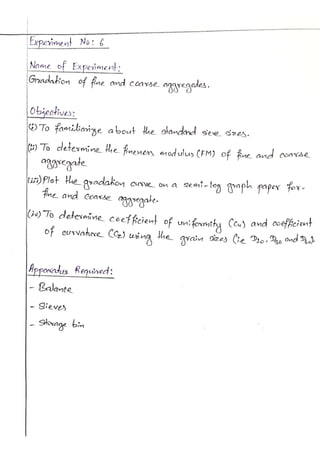 Experiment No: 6
Name of Experiment:
Gradation of fine and coarse aggregates.
Objectives:
(i) To familiarize about the standard sieve sizes.
(ii) To determine the fineness modulus (FM) of fine and coarse
aggregate
(iii) Plot the gradation curve on a semi-log graph paper for-
fine and coarse aggregate.
(iv) To determine coefficient of uniformity (Cu) and coefficient
of curvature (Cz) using the grain sizes (ie D10, D30 and D60).
Apparatus Required:
- Balance
- Sieves
- Storage bin